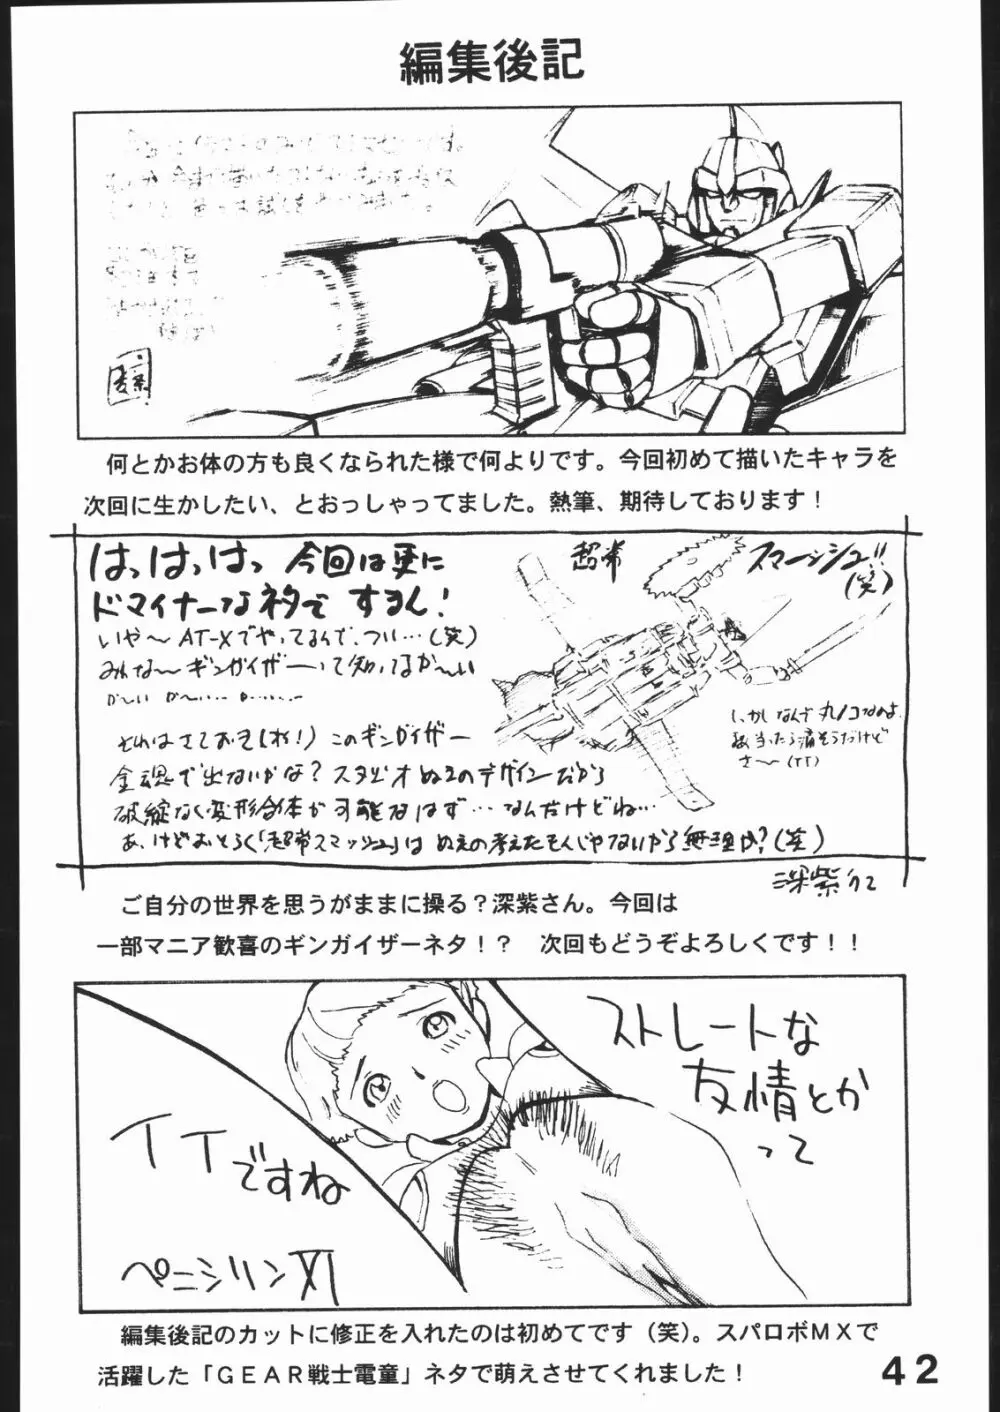 編集後記
何とかお体の方も良くなられた様で何よりです。今回初めて描いたキャラを
次回に生かしたい、とおっしゃってました。熱筆、期待しております！
はっはっはっ 今回は更に
ドマイナーなネタで するん！
いや〜 AT-Xでやってるんで、つい…(笑)
みんな〜ギンガイザーって知ってるか〜い
か〜い か〜い…
超常
スマーッシュ!!
(笑)
しかしなんで丸ノコなのよ
当たったら痛そうだけど
さ〜(TT)
それはさておき(ね！) このギンガイザー
金魂で出ないかな？スタジオぬえのデザインだから
破綻なく変形合体が可能なはず…なんだけどね…
あ、けどおそらく「超常スマッシュ」は ぬえの考えたもんじゃないから無理か？(笑)
深紫
ご自分の世界を思うがままに操る？深紫さん。今回は
一部マニア歓喜のギンガイザーネタ！？　次回もどうぞよろしくです！！
ストレートな
友情とか
って
イイですね
ペニシリンXI
編集後記のカットに修正を入れたのは初めてです（笑）。スパロボＭＸで
活躍した「ＧＥＡＲ戦士電童」ネタで萌えさせてくれました！
42